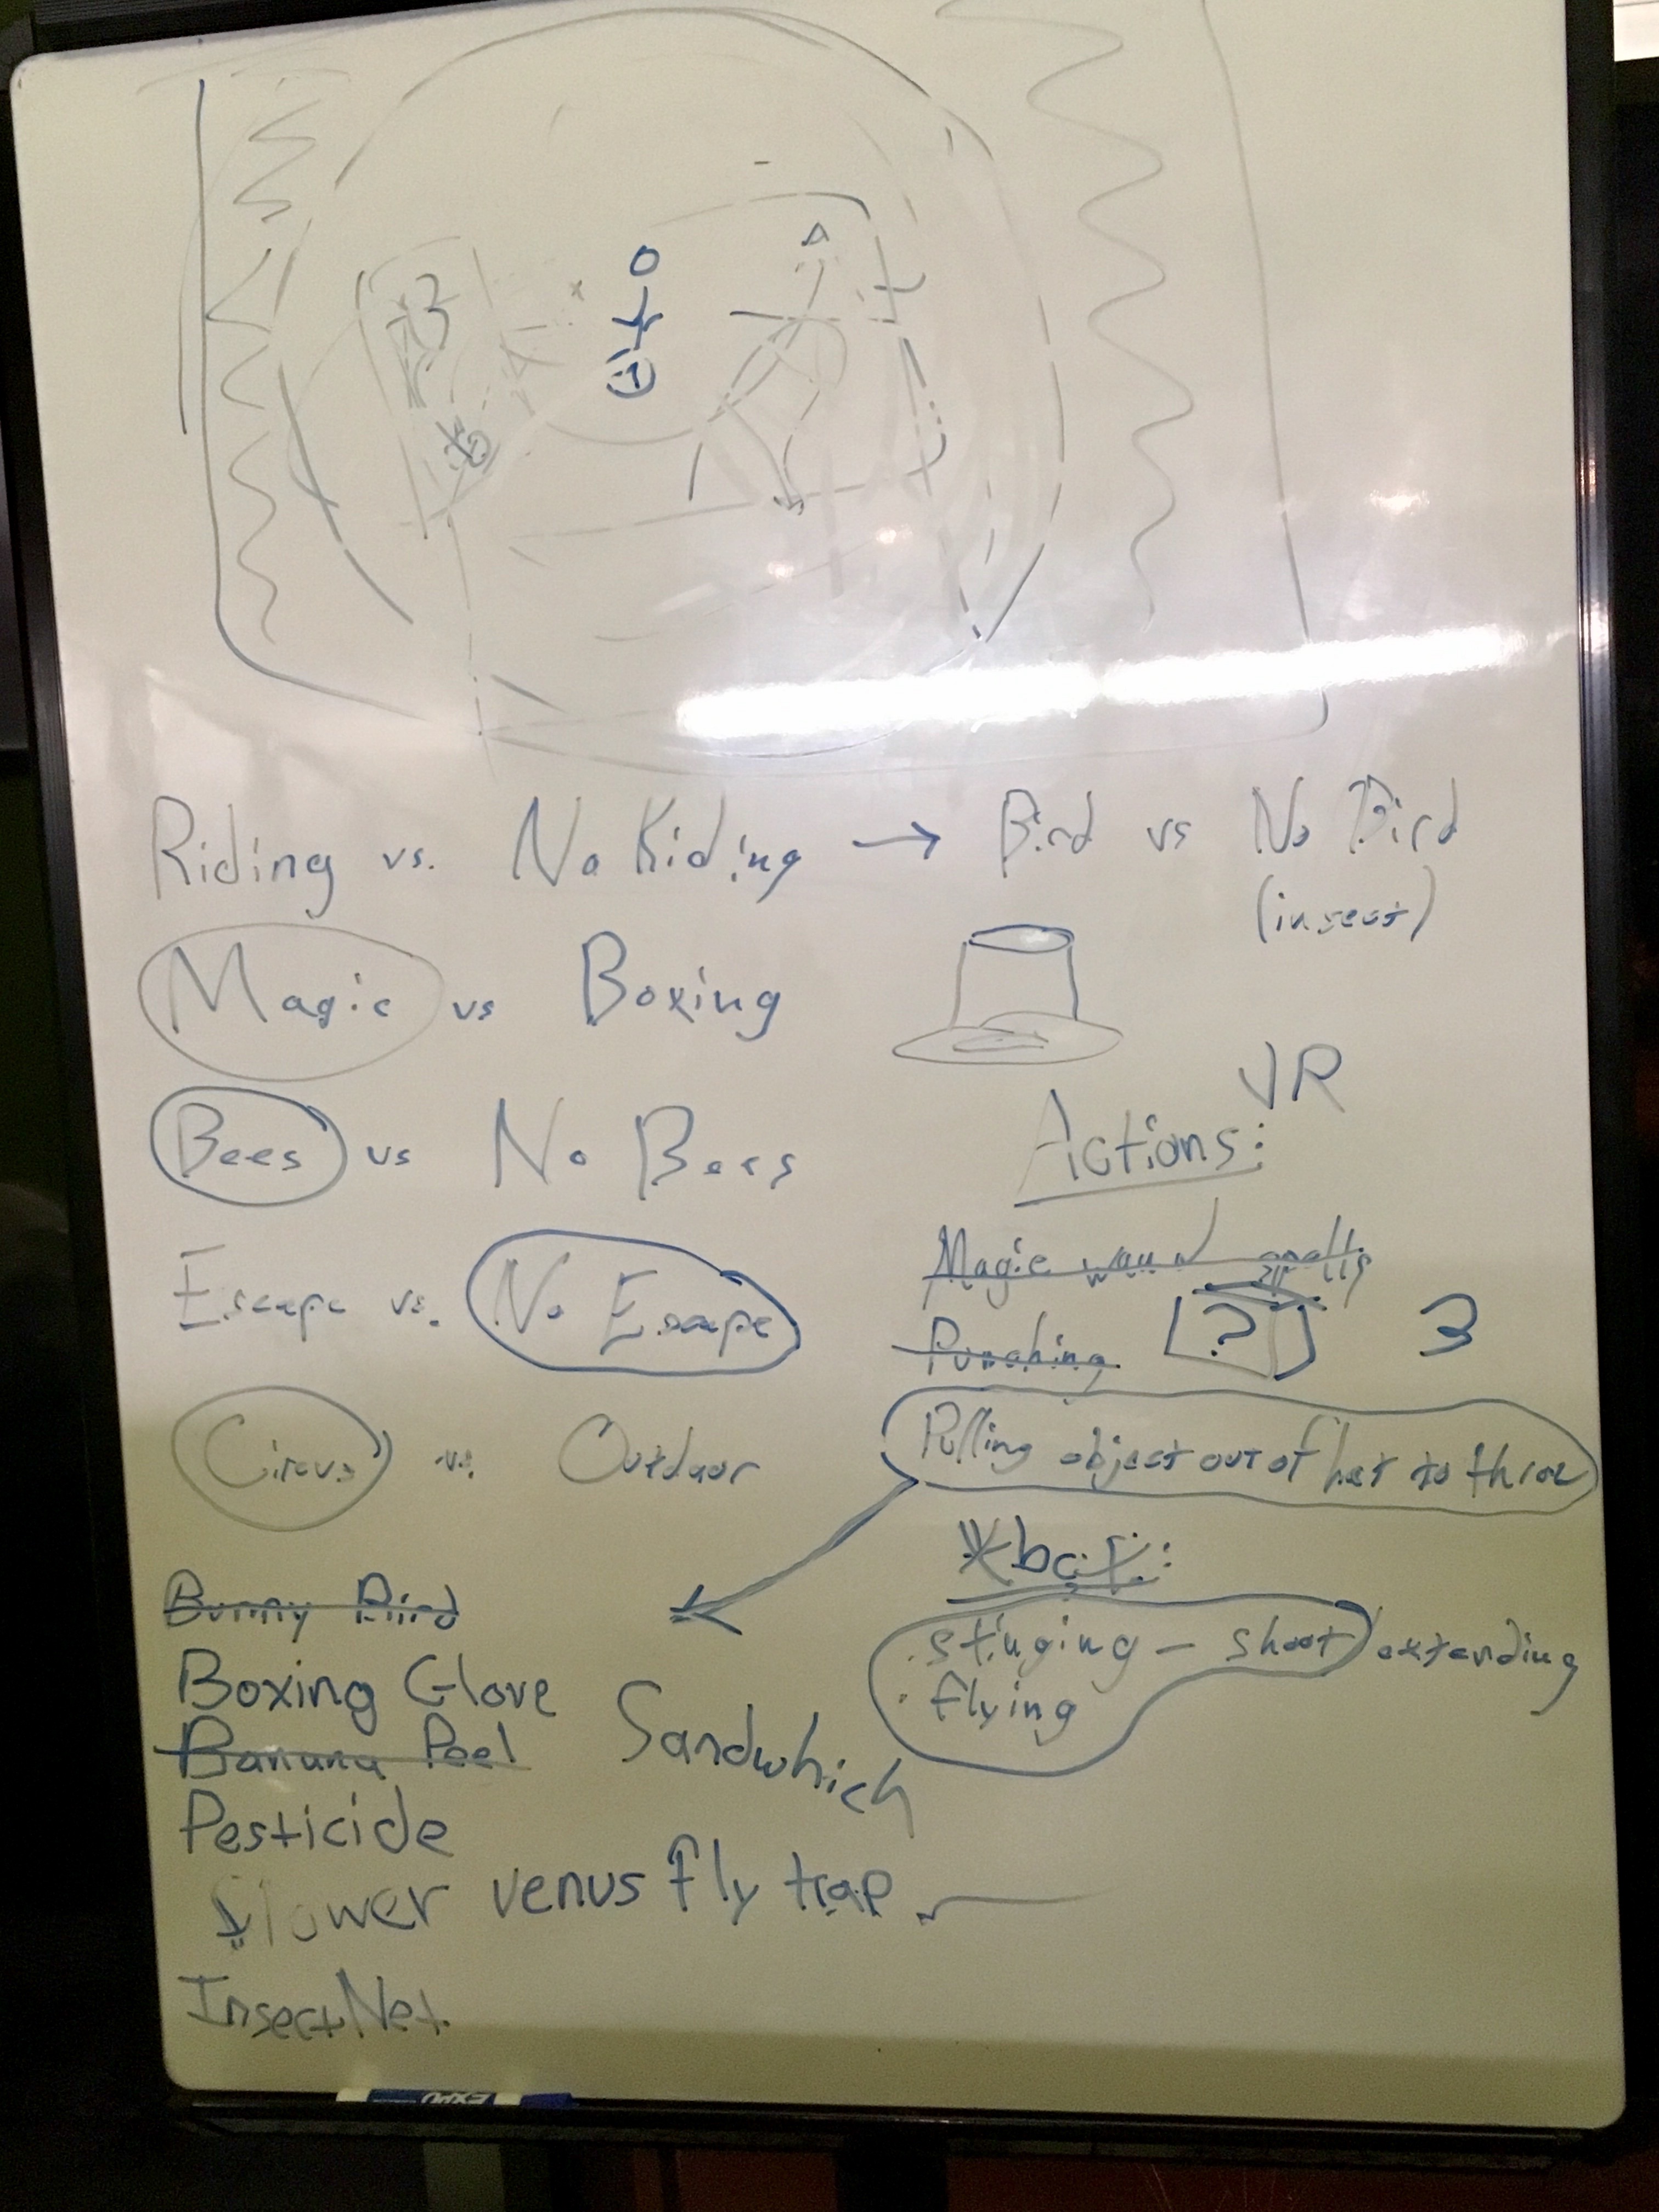 Riding vs. No Riding → Bird vs No Bird
(insect)
Magic vs Boxing
VR
Bees vs No Bees
Actions:
Escape vs. No Escape
Magic wand spells
?
3
Punching
Circus vs. Outdoor
Pulling object out of hat to throw
Xbox:
Bunny Bird
stinging - shoot extending
Boxing Glove
flying
Sandwhich
Banana Peel
Pesticide
Flower venus fly trap
Insect Net
EXPO